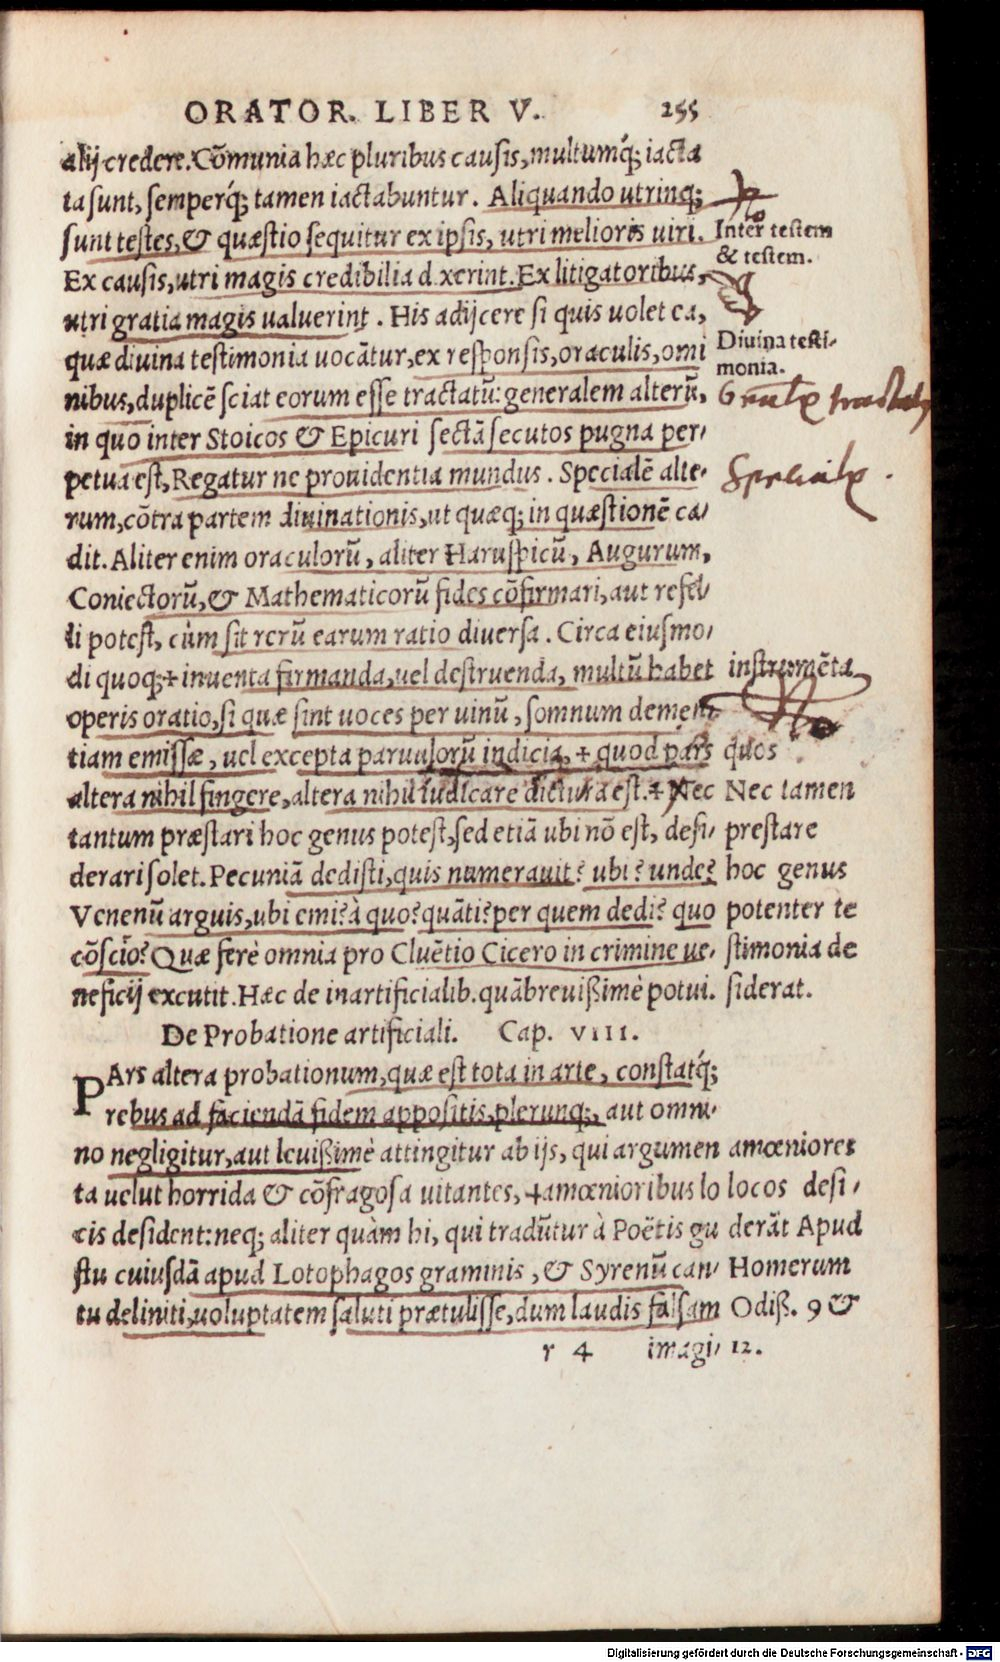 ORATOR. LIBER V. 255
alij credere. Cõmunia hæc pluribus causis, multumq́; iacta
ta sunt, semperq́; tamen iactabuntur. Aliquando utrinq;
sunt testes, & quæstio sequitur ex ipsis, utri melioris uiri.
Inter testem
& testem.
Ex causis, utri magis credibilia d xerint. Ex litigatoribus,
utri gratia magis ualuerint. His adijcere si quis uolet ea,
quæ diuina testimonia uocãtur, ex responsis, oraculis, omi
Diuina testi-
monia.
nibus, duplicẽ sciat eorum esse tractatũ: generalem alterũ,
in quo inter Stoicos & Epicuri sectã secutos pugna per-
petua est, Regatur ne prouidentia mundus. Specialẽ alte-
rum, cõtra partem diuinationis, ut quæq; in quæstionẽ ca-
dit. Aliter enim oraculorũ, aliter Haruspicũ, Augurum,
Coniectorũ, & Mathematicorũ fides cõfirmari, aut refel-
li potest, cùm sit rerũ earum ratio diuersa. Circa eiusmo-
di quoq; + inuenta firmanda, uel destruenda, multũ habet
instrumẽta
operis oratio, si quæ sint uoces per uinũ, somnum demen
tiam emissæ, uel excepta paruulorũ indicia, + quod pars
quos
altera nihil fingere, altera nihil iudicare dictura est. + Nec
Nec tamen
tantum præstari hoc genus potest, sed etiã ubi nõ est, desi-
prestare
derari solet. Pecuniã dedisti, quis numerauit? ubi? unde?
hoc genus
Venenũ arguis, ubi emi? à quo? quãti? per quem dedi? quo
potenter te
cõscio? Quæ ferè omnia pro Cluẽtio Cicero in crimine ue-
stimonia de
neficij excutit. Hæc de inartificialib. quã breuißimè potui.
siderat.
De Probatione artificiali. Cap. VIII.
PArs altera probationum, quæ est tota in arte, constatq́;
rebus ad faciendã fidem appositis, plerunq;, aut omni-
no negligitur, aut leuißimè attingitur ab ijs, qui argumen
amœniores
ta uelut horrida & cõfragosa uitantes, + amœnioribus lo
locos desi-
cis desident: neq; aliter quàm hi, qui tradũtur à Poëtis gu
derãt Apud
stu cuiusdã apud Lotophagos graminis, & Syrenũ can-
Homerum
tu deliniti, uoluptatem saluti prætulisse, dum laudis falsam
Odiß. 9 &
r 4 imagi- 12.
Digitalisierung gefördert durch die Deutsche Forschungsgemeinschaft - DFG